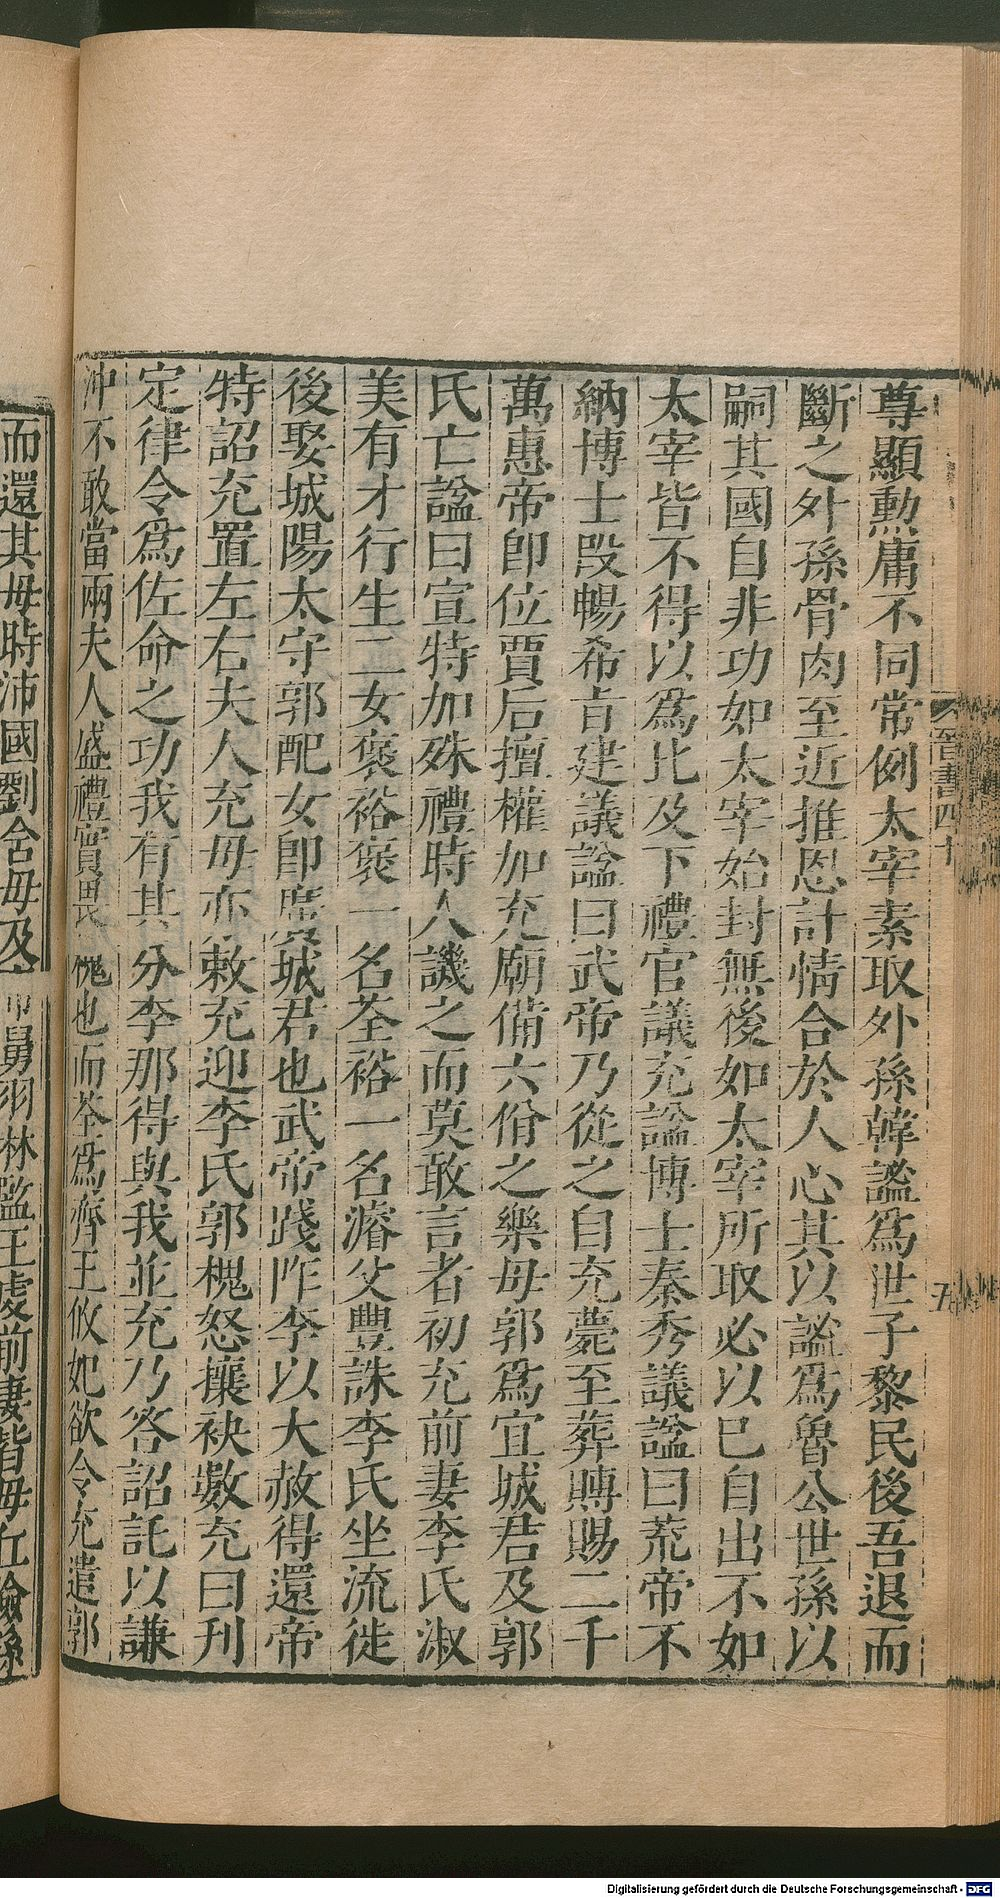 尊顯勲庸不同常例太宰素取外孫韓謐爲世子黎民後吾退而
斷之外孫骨肉至近推恩計情合於人心其以謐爲魯公世孫以
嗣其國自非功如太宰始封無後如太宰所取必以已自出不如
太宰皆不得以爲比及下禮官議充謚博士秦秀議謚曰荒帝不
納博士段暢希旨建議謚曰武帝乃從之自充薨至葬賻賜二千
萬惠帝卽位賈后擅權加充廟備六佾之樂母郭爲宜城君及郭
氏亡謚曰宣特加殊禮時人譏之而莫敢言者初充前妻李氏淑
美有才行生二女褒裕褒一名荃裕一名濬父豐誅李氏坐流徙
後娶城陽太守郭配女卽廣城君也武帝踐阼李以大赦得還帝
特詔充置左右夫人充母亦敕充迎李氏郭槐怒攘袂數充曰刋
定律令爲佐命之功我有其分李那得與我並充乃答詔託以謙
沖不敢當兩夫人盛禮實畏槐也而荃爲齊王攸妃欲令充遣郭
而還其母時沛國劉含母及帝舅羽林監王虔前妻皆毋丘儉孫
晉書四十
五
Digitalisierung gefördert durch die Deutsche Forschungsgemeinschaft - DFG